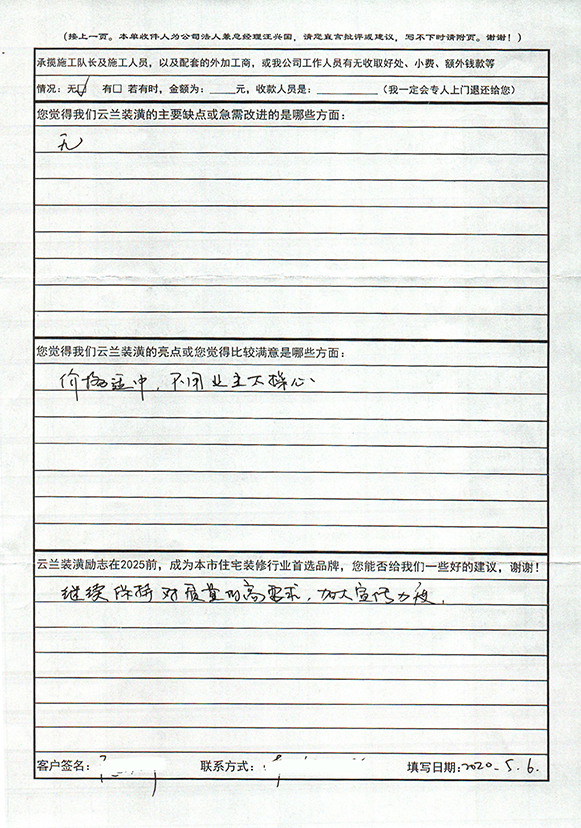 (接上一页。本单收件人为公司法人兼总经理汪兴国，请您直言批评或建议，写不下时请附页。谢谢！)
承揽施工队长及施工人员，以及配套的外加工商，或我公司工作人员有无收取好处、小费、额外钱款等
情况：无☑ 有□ 若有时，金额为：____元，收款人员是：__________（我一定会专人上门退还给您）
您觉得我们云兰装潢的主要缺点或急需改进的是哪些方面：
无
您觉得我们云兰装潢的亮点或您觉得比较满意是哪些方面：
价格适中，不用业主太操心、
云兰装潢励志在2025前，成为本市住宅装修行业首选品牌，您能否给我们一些好的建议，谢谢！
继续保持对质量的高要求，加大宣传力度.
客户签名： 联系方式： 填写日期：2020.5.6.